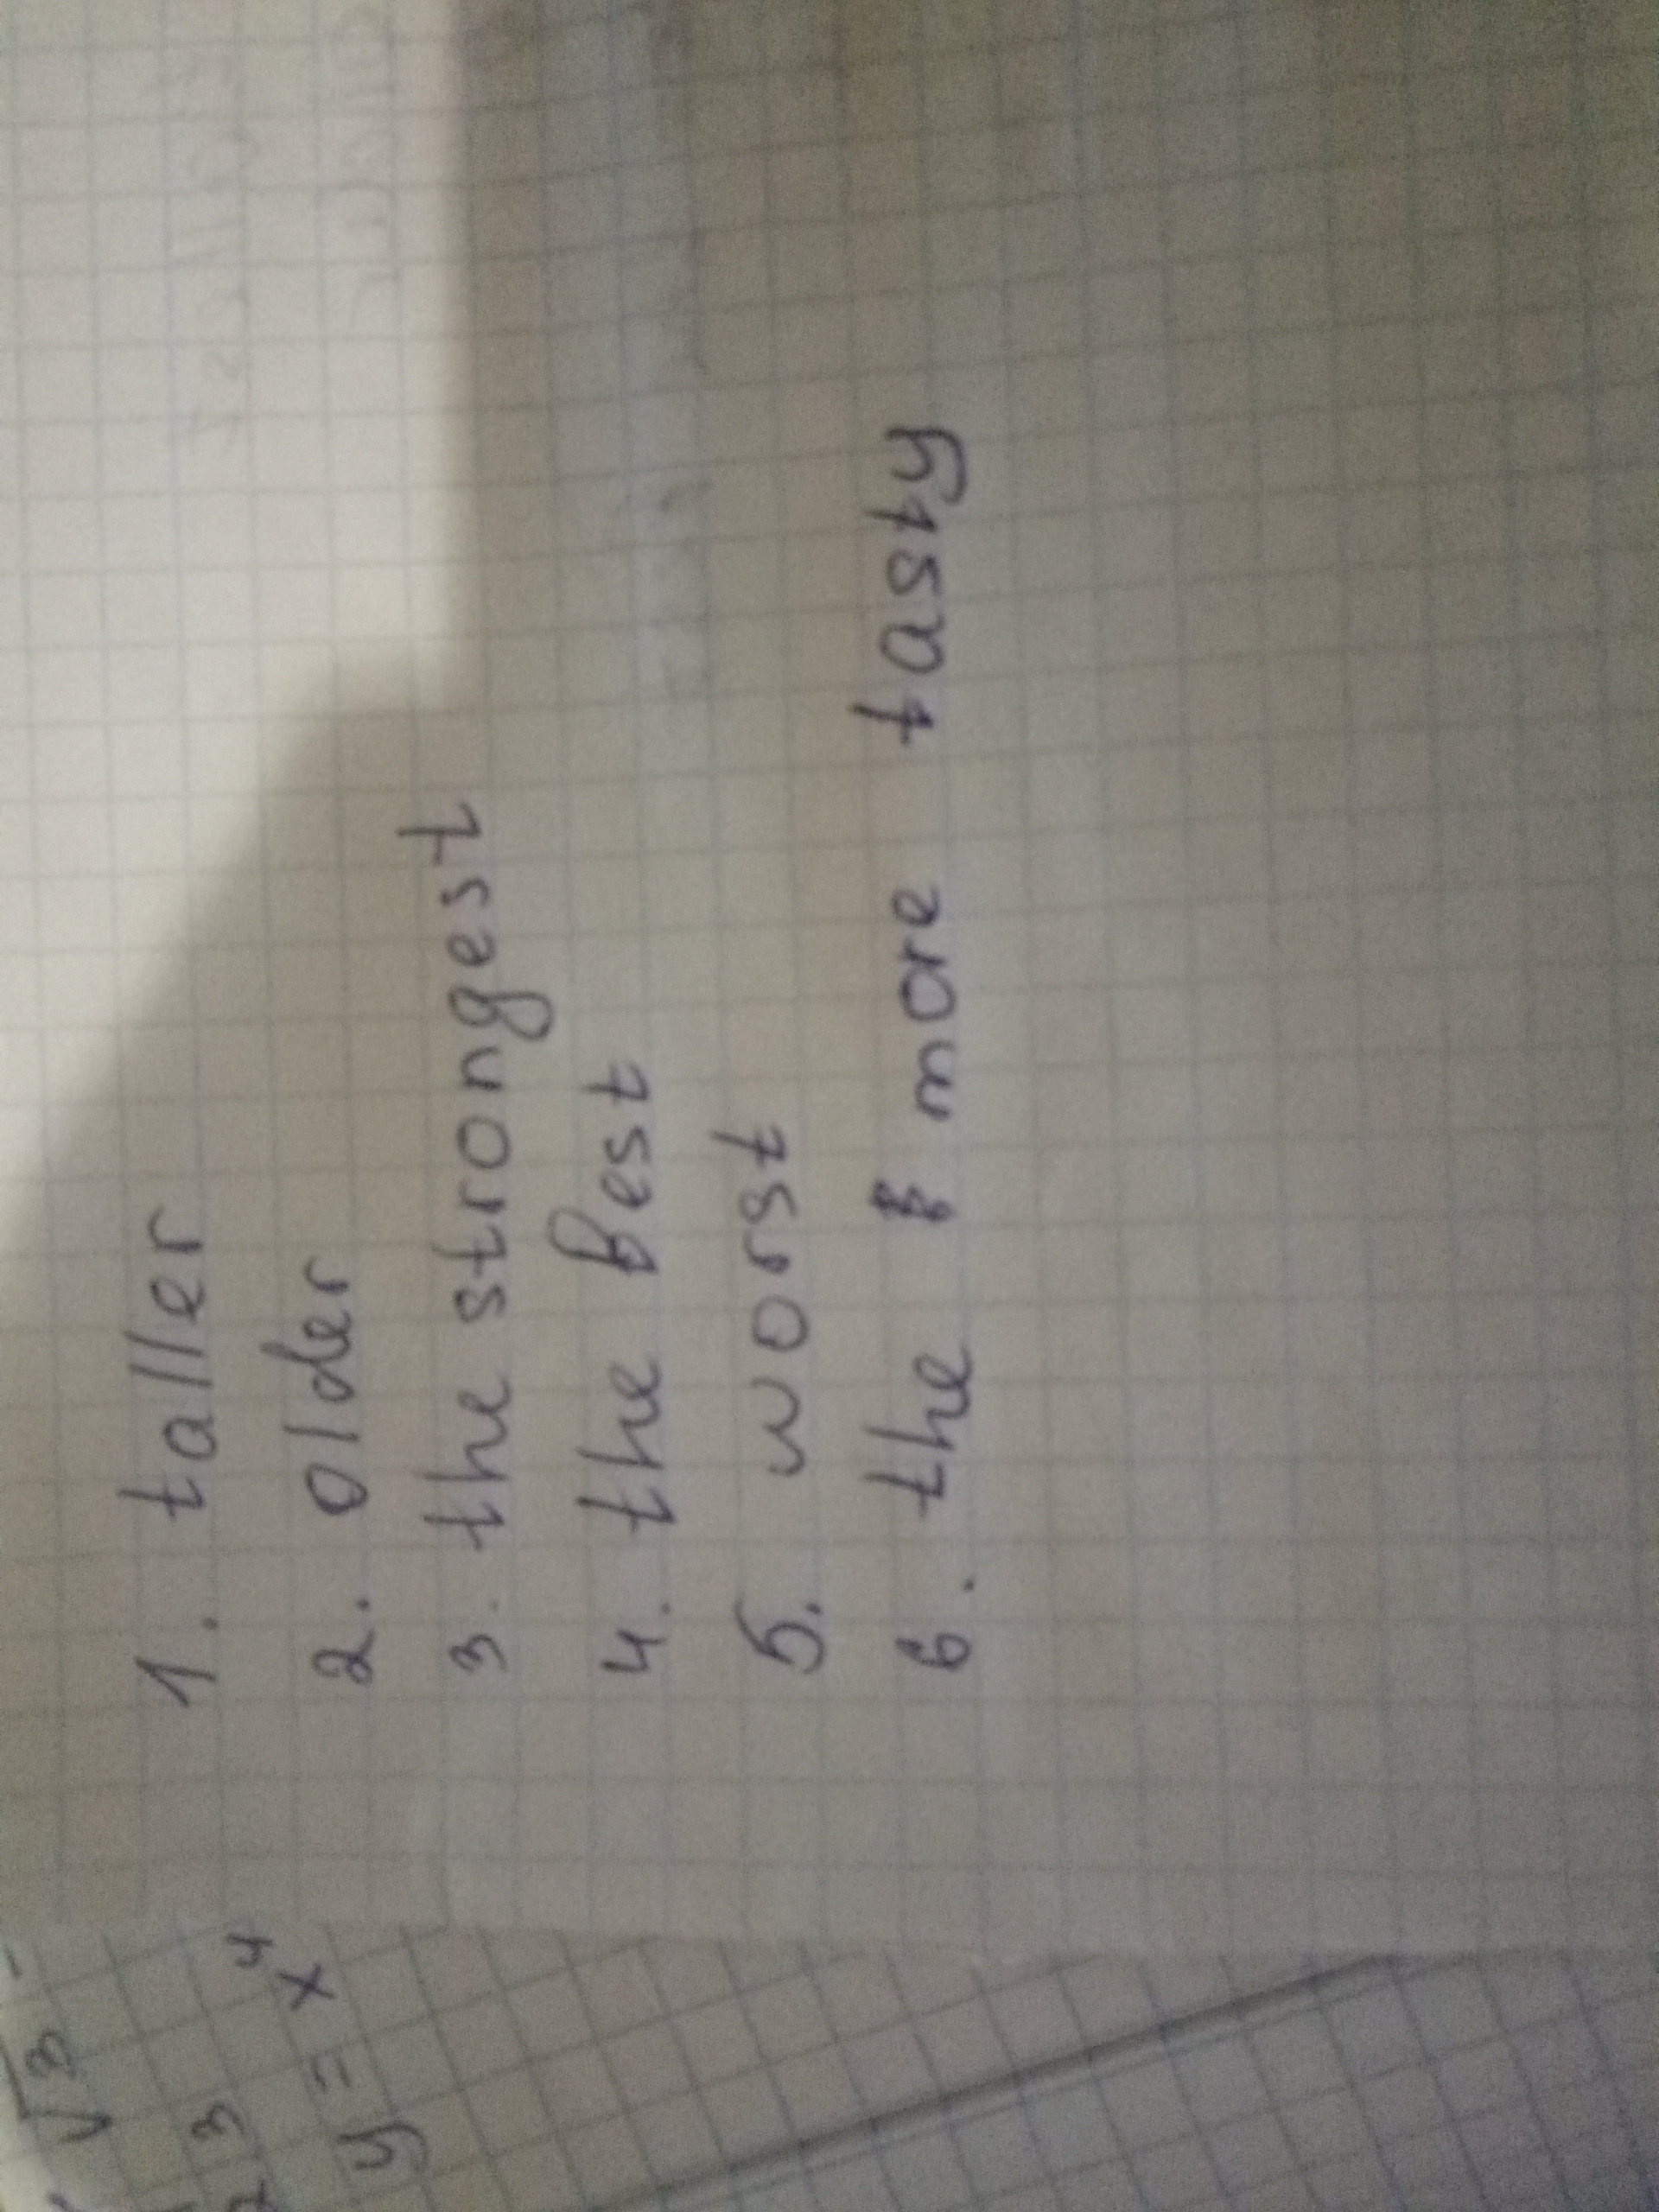 1. taller
2. older
3. the strongest
4. the best
5. worst
6. the more tasty
√3
3
y = x⁴